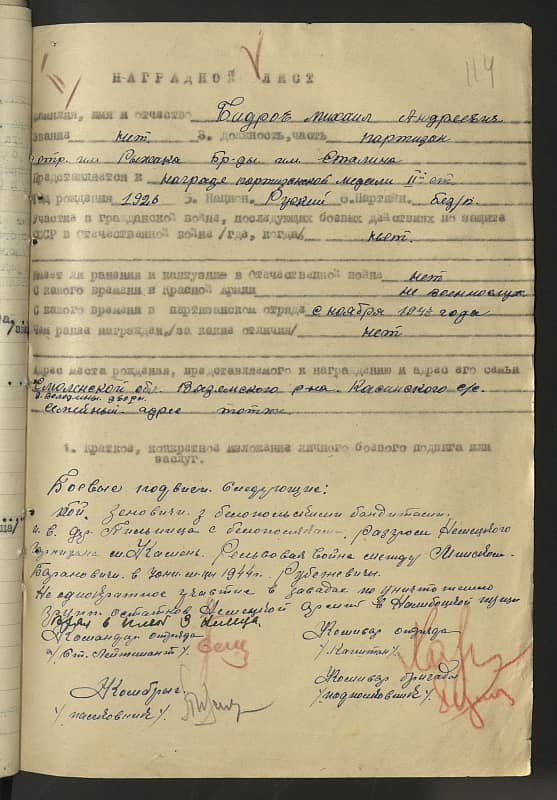 114
НАГРАДНОЙ ЛИСТ
Фамилия, имя и отчество Бидров Михаил Андреевич
Звание нет 3. Должность, часть партизан
отр. им Рыжака Бр-ды им. Сталина
Представляется к награде партизанской медали II-й ст.
Год рождения 1926 5. Национ. Русский 6. Партийн. без/п.
Участие в гражданской войне, последующих боевых действиях по защите
СССР в Отечественной войне /где, когда/ нет.
Имеет ли ранения и контузии в Отечественной войне нет
С какого времени в Красной Армии не военнослуж
С какого времени в партизанском отряде с ноября 1943 года
Чем ранее награжден, /за какие отличия/ нет
Адрес места рождения, представляемого к награждению и адрес его семьи
Смоленской обл. Вяземского р-на. Касинского с/с.
д. дворы.
Семейный адрес тотже.
1. Краткое, конкретное изложение личного боевого подвига или
заслуг.
Боевые подвиги следующие:
бой. Зеновичи з белопольскими бандитами.
и. в. дер. с белополяками. Разгром Немецкого
Гарнизона м. Камень. Рельсовая война между Минском-
Барановичи. в июне м-це 1944г. Рубежевичи.
Не однократное участие в засадах по уничтожению
групп остатков Немецкой армии в Налибоцкой пущи
взял в плен 3 немца
Командир отряда
/Ст. Лейтенант/
Комиссар отряда
/Капитан/
Комбриг
/полковник/
Комиссар бригады
/подполковник/